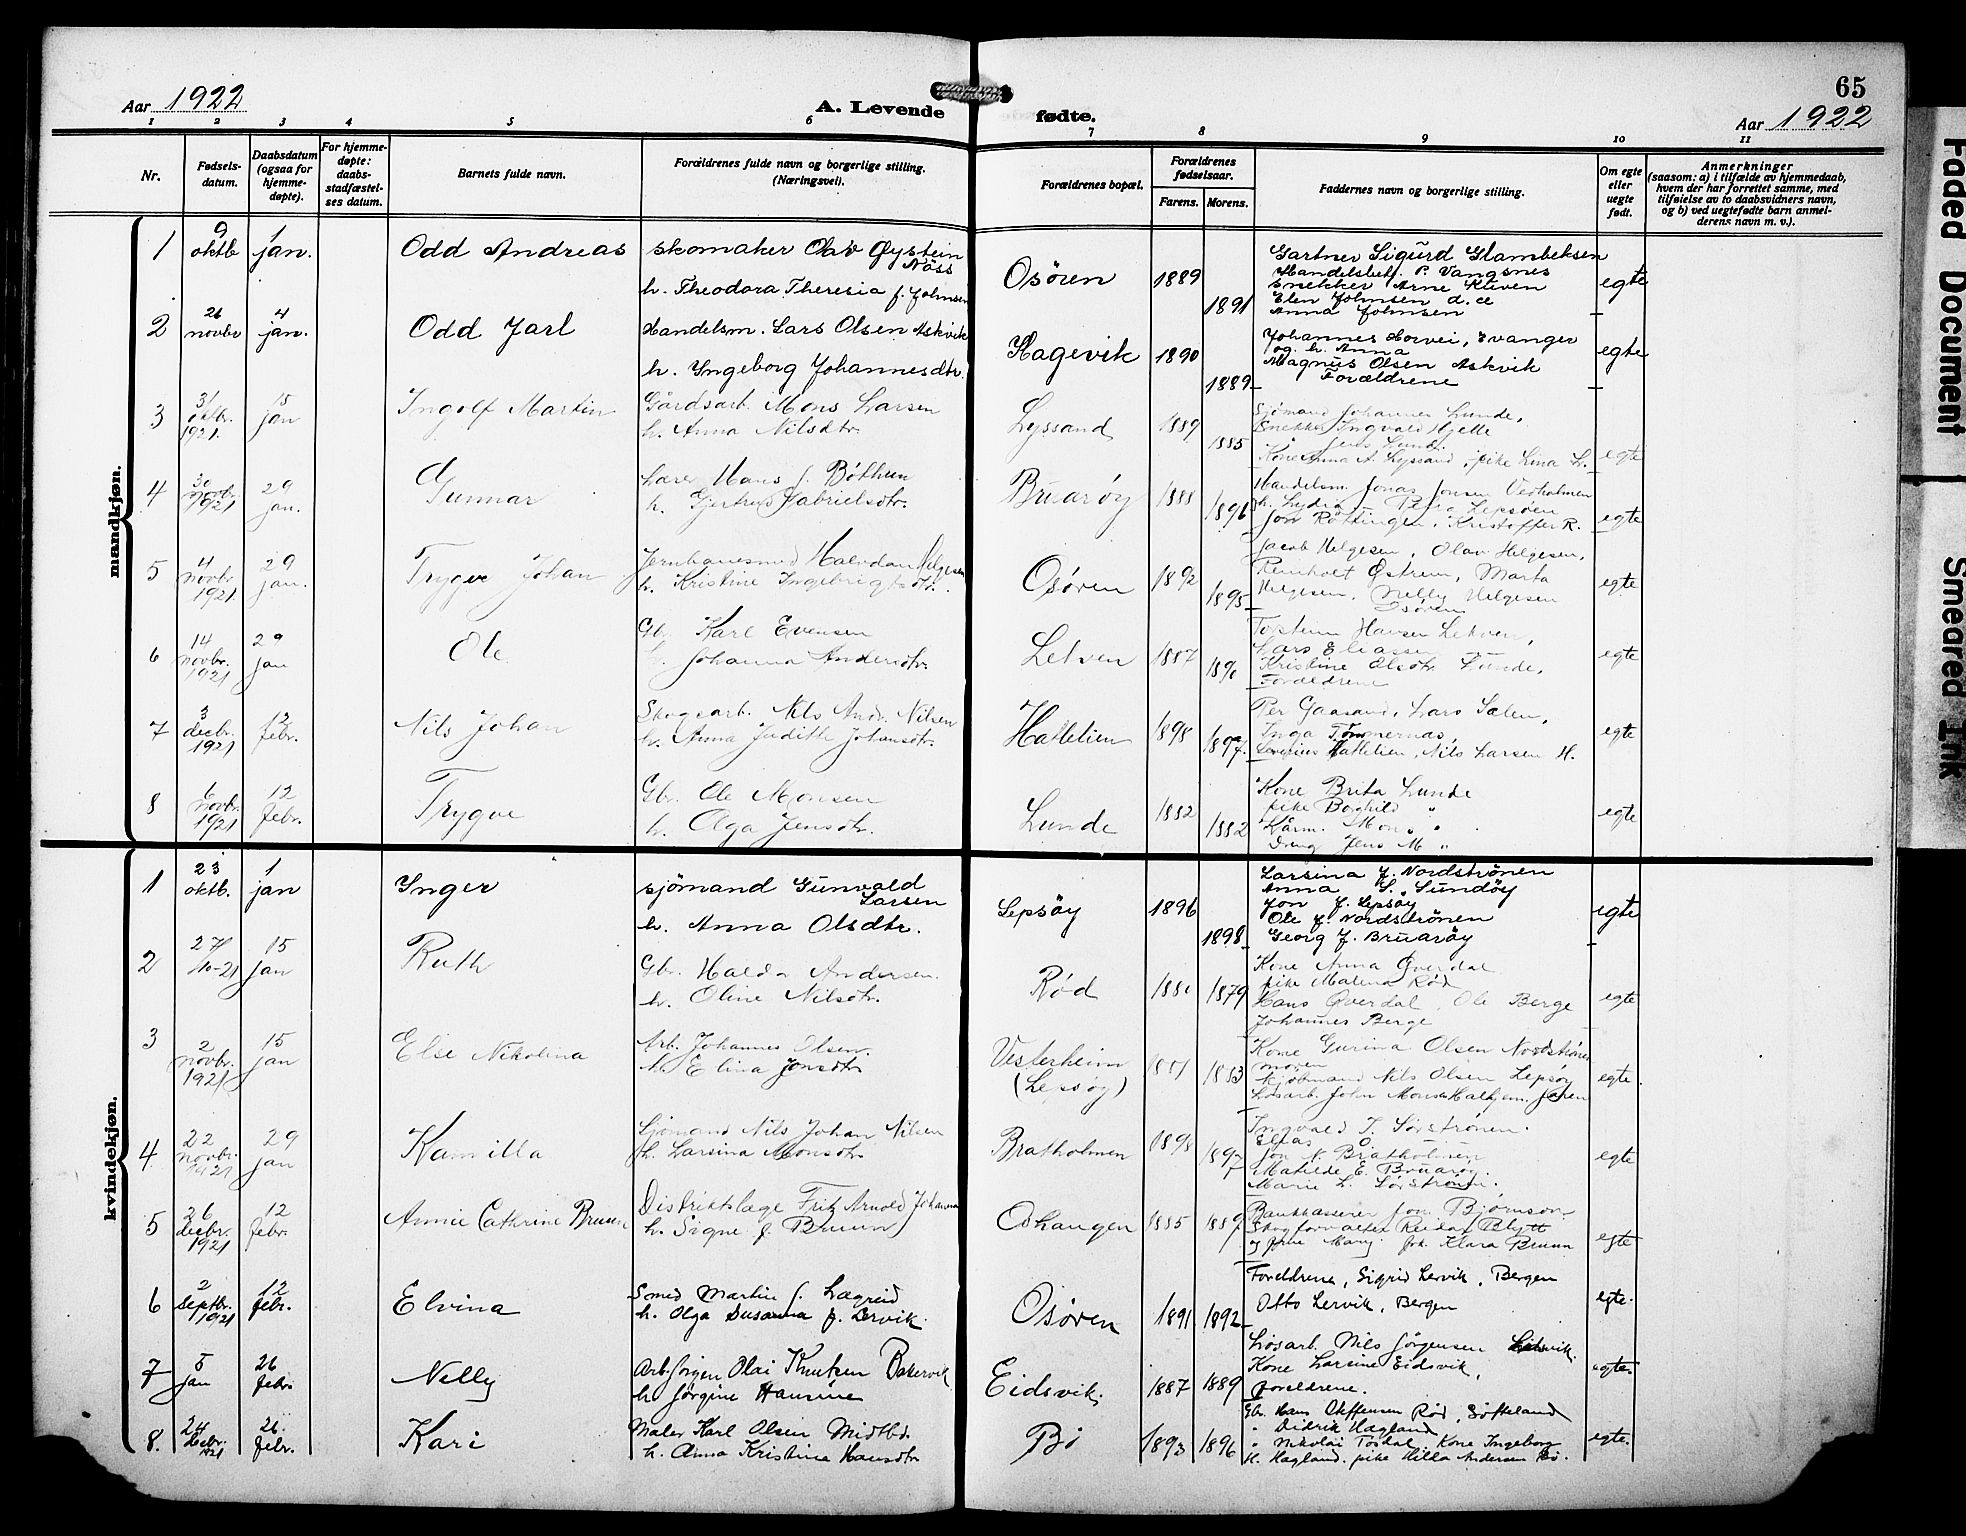 65
Aar 1922
A. Levende fødte.
Aar 1922
1 2 3 4 5 6 7 8 9 10 11
Nr.
Fødsels-
datum.
Daabsdatum
(ogsaa for
hjemme-
døpte).
For hjemme-
døpte:
daabs-
stadfæstel-
ses datum.
Barnets fulde navn.
Forældrenes fulde navn og borgerlige stilling.
(Næringsvei).
Forældrenes bopæl.
Forældrenes
fødselsaar.
Farens. Morens.
Faddernes navn og borgerlige stilling.
Om egte
eller
uegte
født.
Anmerkninger
(saasom: a) i tilfælde av hjemmedaab,
hvem der har forrettet samme, med
tilføielse av to daabsvidners navn,
og b) ved uegtefødte barn anmel-
derens navn m. v.).
mandkjøn.
1 9 oktb 1 jan. Odd Andreas
skomaker Olav Øystein
Näss
h. Theodora Theresia f. Johnsen
Osören 1889 1891
Gartner Sigurd Glambeksen
Handelsbetj. P. Vangsnes
Snekker Arne Kuven
Elen Johnsen d. ce
Anna Johnsen
egte
2 26 novbr 4 jan. Odd Jarl
Handelsm. Lars Olsen Askvik
h. Ingeborg Johannesdtr.
Hagevik 1890 1889
Johannes Horvei, Evanger
og h. Anna
Magnus Olsen Askvik
Forældrene
egte
3 31 oktbr. 1921. 15 jan Ingolf Martin
Gårdsarb. Mons Larsen
h. Anna Nilsdtr.
Lyssand 1889 1885
Sjömand Johannes Lunde,
Snekker Ingvald Hjelle
Jens Lunde
Kone Anna A. Lyssand, pike Lina
egte
4 30 novbr. 1921 29 jan. Gunnar
Lærer Hans J. Böthun
h. Gjertrud Gabrielsdtr.
Bruarøy 1888 1896
Handelsm. Jonas Jonsen Vedholmen
h. Lydia, Petra Lepsøen
Jon Röttingen, Kristoffer R.
egte
5 4 novbr 1921. 29 jan. Trygve Johan
Jernbanemand Halvdan Helgesen
h. Kristine Ingebrigtsdtr.
Osøren 1892 1895
Jacob Helgesen, Olav Helgesen,
Reinholt Østrem, Marta
Helgesen, Nelly Helgesen
Osøren
egte
6 14 novbr. 1921 29 jan Ole
Gbr. Karl Evensen
h. Johanna Andersdtr.
Lekven 1887 1890
Torstein Hansen Lekven,
Lars Eliassen
Kristine Olsdtr Lunde,
Forældrene
egte
7 3 decbr. 1921 12 febr. Nils Johan
Skogsarb. Nils Andr. Nilsen
h. Anna Judith Johansdtr.
Hatlelien 1898 1897.
Per Gaasand, Lars Sælen,
Inga Tömmernas,
Severius Hatlelien, Nils Larsen H.
egte
8 6 novbr. 1921 12 febr. Trygve
Gbr. Ole Monsen
h. Olga Jensdtr.
Lunde 1882 1882
Kone Brita Lunde
pike Borghild "
Mons "
Dreng Jens M "
egte
kvindekjøn.
1 23 oktb. 1 jan Inger
sjömand Gunvald
Larsen
h. Anna Olsdtr.
Lepsøy 1896 1898
Larsina J. Nordströnen
Anna S. Sundöy
Jon J. Lepsøy
Ole J. Nordströnen
Georg J. Bruarøy
egte
2 27/10-21 15 jan Ruth
Gbr. Haldor Andersen.
h. Oline Nilsdtr.
Rød 1881 1879
Kone Anna Øverdal
pike Malena Rød
Hans Øverdal, Ole Berge
Johannes Berge
egte
3 2 novbr. 1921 15 jan Else Nikolina
Arb. Johannes Olsen.
h. Elina Jonsdtr
Vesterheim
(Lepsøy) 1881 1883
Kone Gurina Olsen Nordströnen
Sjömand Nils Olsen Lepsøy
Løsarb. John Monsen Halhjem.
egte.
4 22 novbr. 1921 29 jan Kamilla
Sjömand Nils Johan Nilsen
h. Larsina Monsdtr
Bratholmen 1898 1897
Ingvald T. Sørströnen.
Elias O.
Jon N. Bratholmen
Matilde E. Bruarøy.
Marie L. Sørströnen.
egte
5 26 decbr. 1921 12 febr. Annie Cathrine Bruun
Distriktslæge Fritz Arnold Johannessen
h. Signe f. Bruun
Odhaugen 1885 1889
Bankkasserer Jon Bjørnson
Skogforvalter Reidar Blytt
og frue Mary. frk. Klara Bruun
egte
6 2 septbr. 1921 12 febr. Elvina
Smed Martin J. Lægreid
h. Olga Susanna f. Lervik.
Osøren 1891 1892
Foreldrene, Sigrid Lervik, Bergen
Otto Lervik, Bergen
egte.
7 5 jan 26 febr. Nelly
Arb. Jørgen Olai Knutsen Bakervik
h. Jørgine Hansine
Eidsvik. 1887 1889
Løsarb. Nils Jørgensen Eidsvik.
Kone Larsine Eidsvik,
foreldrene.
egte.
8. 24 decbr. 1921 26 febr. Kari
Maler Karl Olsen Midtbö.
h. Anna Kristine Hansdtr
Bö 1893 1896
Gbr. Hans Steffensen Rød, Søfteland
" Didrik Hagland
" Nikolai Tösdal. Kone Ingeborg
H. Hagland. pike Hilda Andersen Bö.
egte.
Faded Document
Smeared Ink